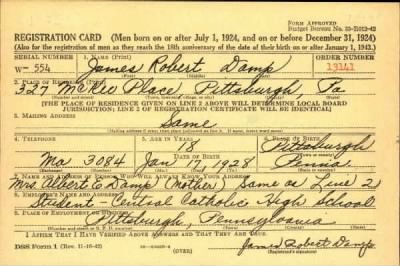 FORM APPROVED
Budget Bureau No. 33-R012-42
REGISTRATION CARD (Men born on or after July 1, 1924, and on or before December 31, 1924)
(Also for the registration of men as they reach the 18th anniversary of the date of their birth on or after January 1, 1943.)
SERIAL NUMBER 1. NAME (Print) ORDER NUMBER
W 554 James Robert Damp 13141
2. PLACE OF RESIDENCE (Print)
327 Place, Pittsburgh, Pa
[THE PLACE OF RESIDENCE GIVEN ON LINE 2 ABOVE WILL DETERMINE LOCAL BOARD
JURISDICTION; LINE 2 OF REGISTRATION CERTIFICATE WILL BE IDENTICAL]
3. MAILING ADDRESS
Same
4. TELEPHONE 5. AGE IN YEARS 6. PLACE OF BIRTH
18 Pittsburgh
DATE OF BIRTH
Ma 3084 Jan 17 1928 Penna.
7. NAME AND ADDRESS OF PERSON WHO WILL ALWAYS KNOW YOUR ADDRESS
Mrs. Albert Damp (mother) Same as Line 2
8. EMPLOYER'S NAME AND ADDRESS
Student - Central Catholic High School
9. PLACE OF EMPLOYMENT OR BUSINESS
Pittsburgh, Pennsylvania
I AFFIRM THAT I HAVE VERIFIED ABOVE ANSWERS AND THAT THEY ARE TRUE.
DSS Form 1 (Rev. 11-16-42) (OVER) James Robert Damp
(Registrant's signature)